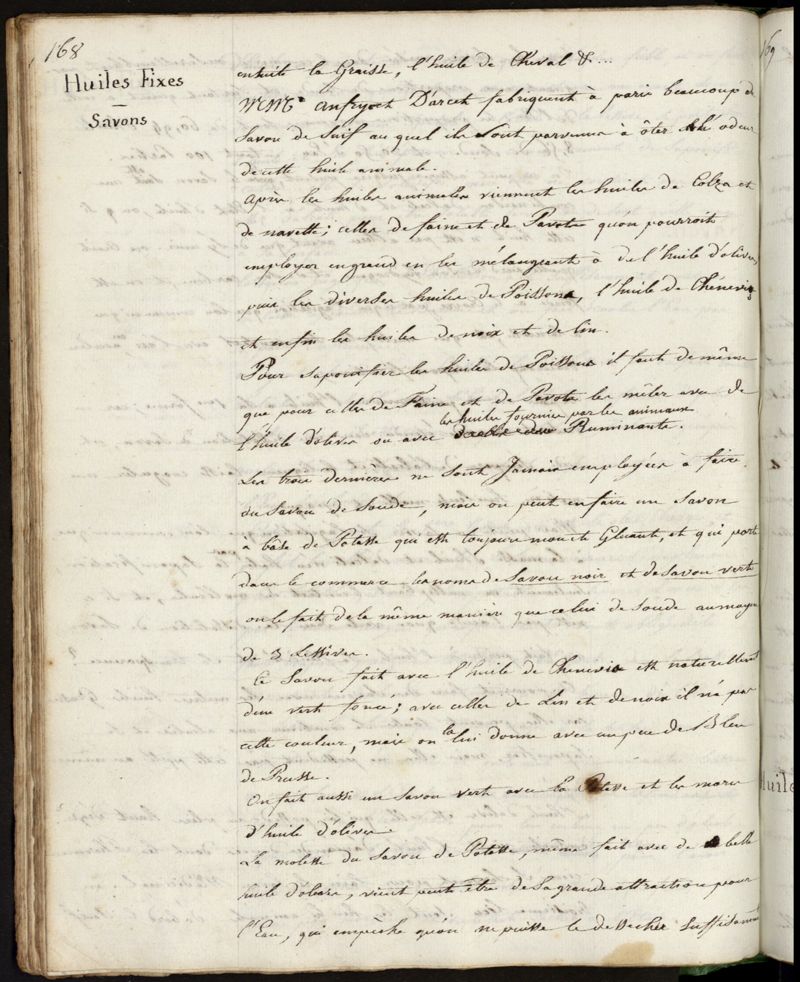 168
Huiles Fixes
Savons
ensuite la Graisse, l'huile de Cheval &...
MMrs Anfryet Darcet fabriquent à paris beaucoup de
Savon de Suif au quel ils sont parvenus à ôter odeur
de cette huile animale.
après les huiles animales viennent les huiles de Colza et
de navette; celles de faine et de Pavots qu'on pourroit
employer en grand en les mélangeant à de l'huile d'olives,
puis les diverses huiles de Poissons, l'huile de Chenevis
et enfin les huiles de noix et de lin.
Pour saponifier les huiles de Poissons il faut de même
que pour celles de Faine et de Pavots les mêler avec de
l'huile d'olives ou avec les huiles fournies par les animaux Ruminants.
Les trois dernieres ne sont Jamais employées à faire
du Savon de Soude, mais on peut en faire un Savon
à base de Potasse qui est toujours mou et Gluant, et qui porte
dans le commerce les noms de Savon noir et de Savon vert
on le fait de la même maniere que celui de Soude au moyen
de 3 Lessives.
Ce Savon fait avec l'huile de Chenevis est naturellement
d'un vert foncé; avec celles de Lin et de noix il n'a pas
cette couleur, mais on la lui donne avec un peu de Bleu
de Prusse.
On fait aussi un Savon vert avec la Potasse et les marcs
d'huile d'olives
La molesse du Savon de Potasse, même fait avec de belle
huile d'olives, vient peut être de sa grande attraction pour
l'Eau, qui empêche qu'on ne puisse le dessecher suffisamment
169
Huile